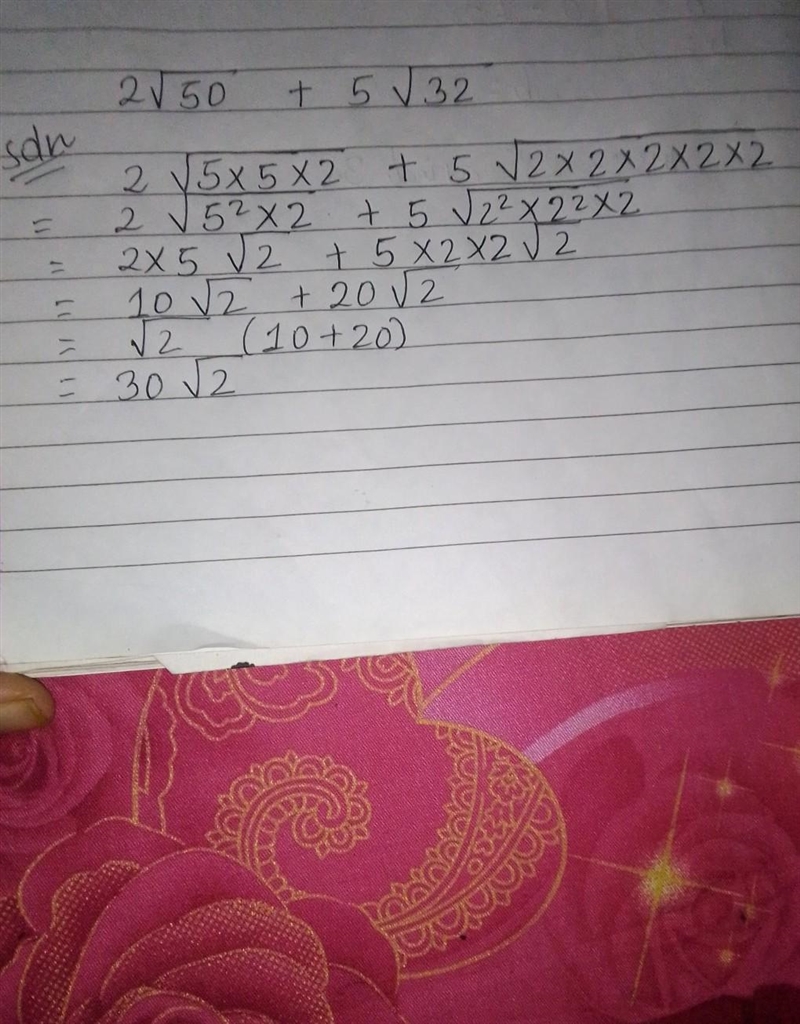 2√50 + 5√32
Soln
2√5×5×2 + 5√2×2×2×2×2
= 2√5²×2 + 5√2²×2²×2
= 2×5√2 + 5×2×2√2
= 10√2 + 20√2
= √2 (10+20)
= 30√2